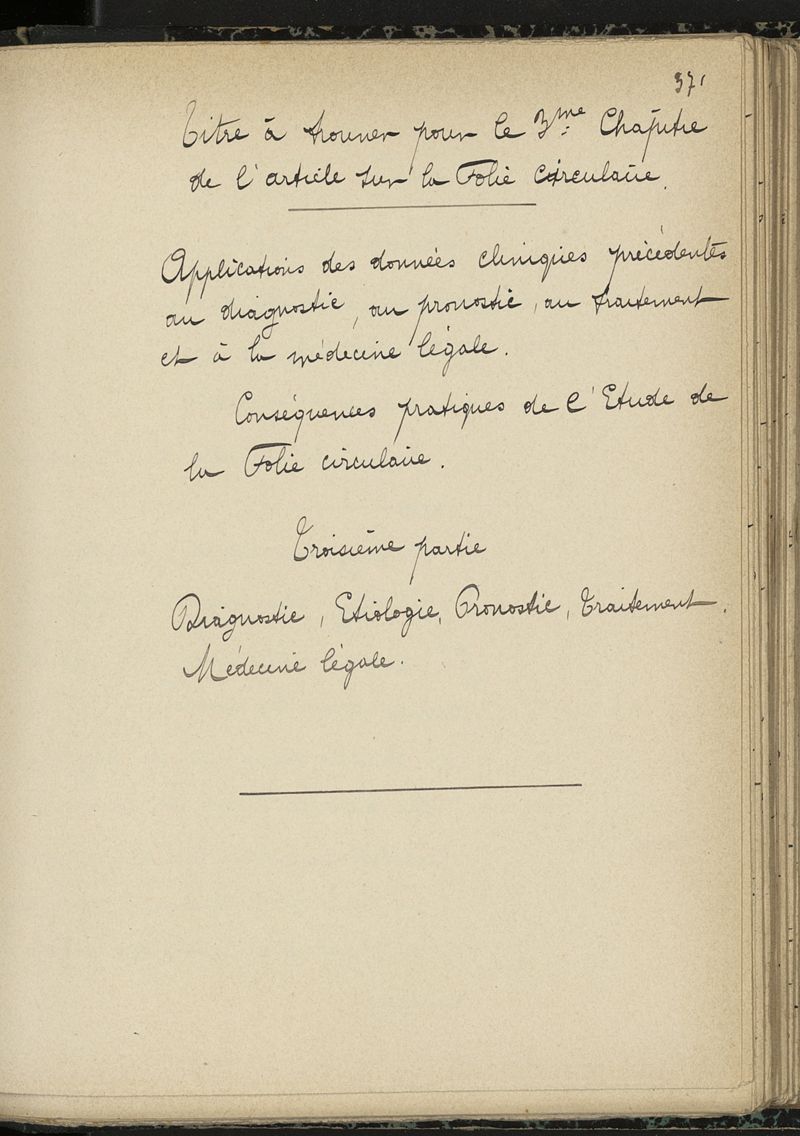 371
Titre à trouver pour le 3me Chapitre
de l'article sur la Folie circulaire.
Applications des données cliniques précédentes
au diagnostic, au pronostic, au traitement
et à la médecine légale.
Conséquences pratiques de l'Etude de
la Folie circulaire.
Troisième partie
Diagnostic, Etiologie, Pronostic, Traitement,
Médecine légale.